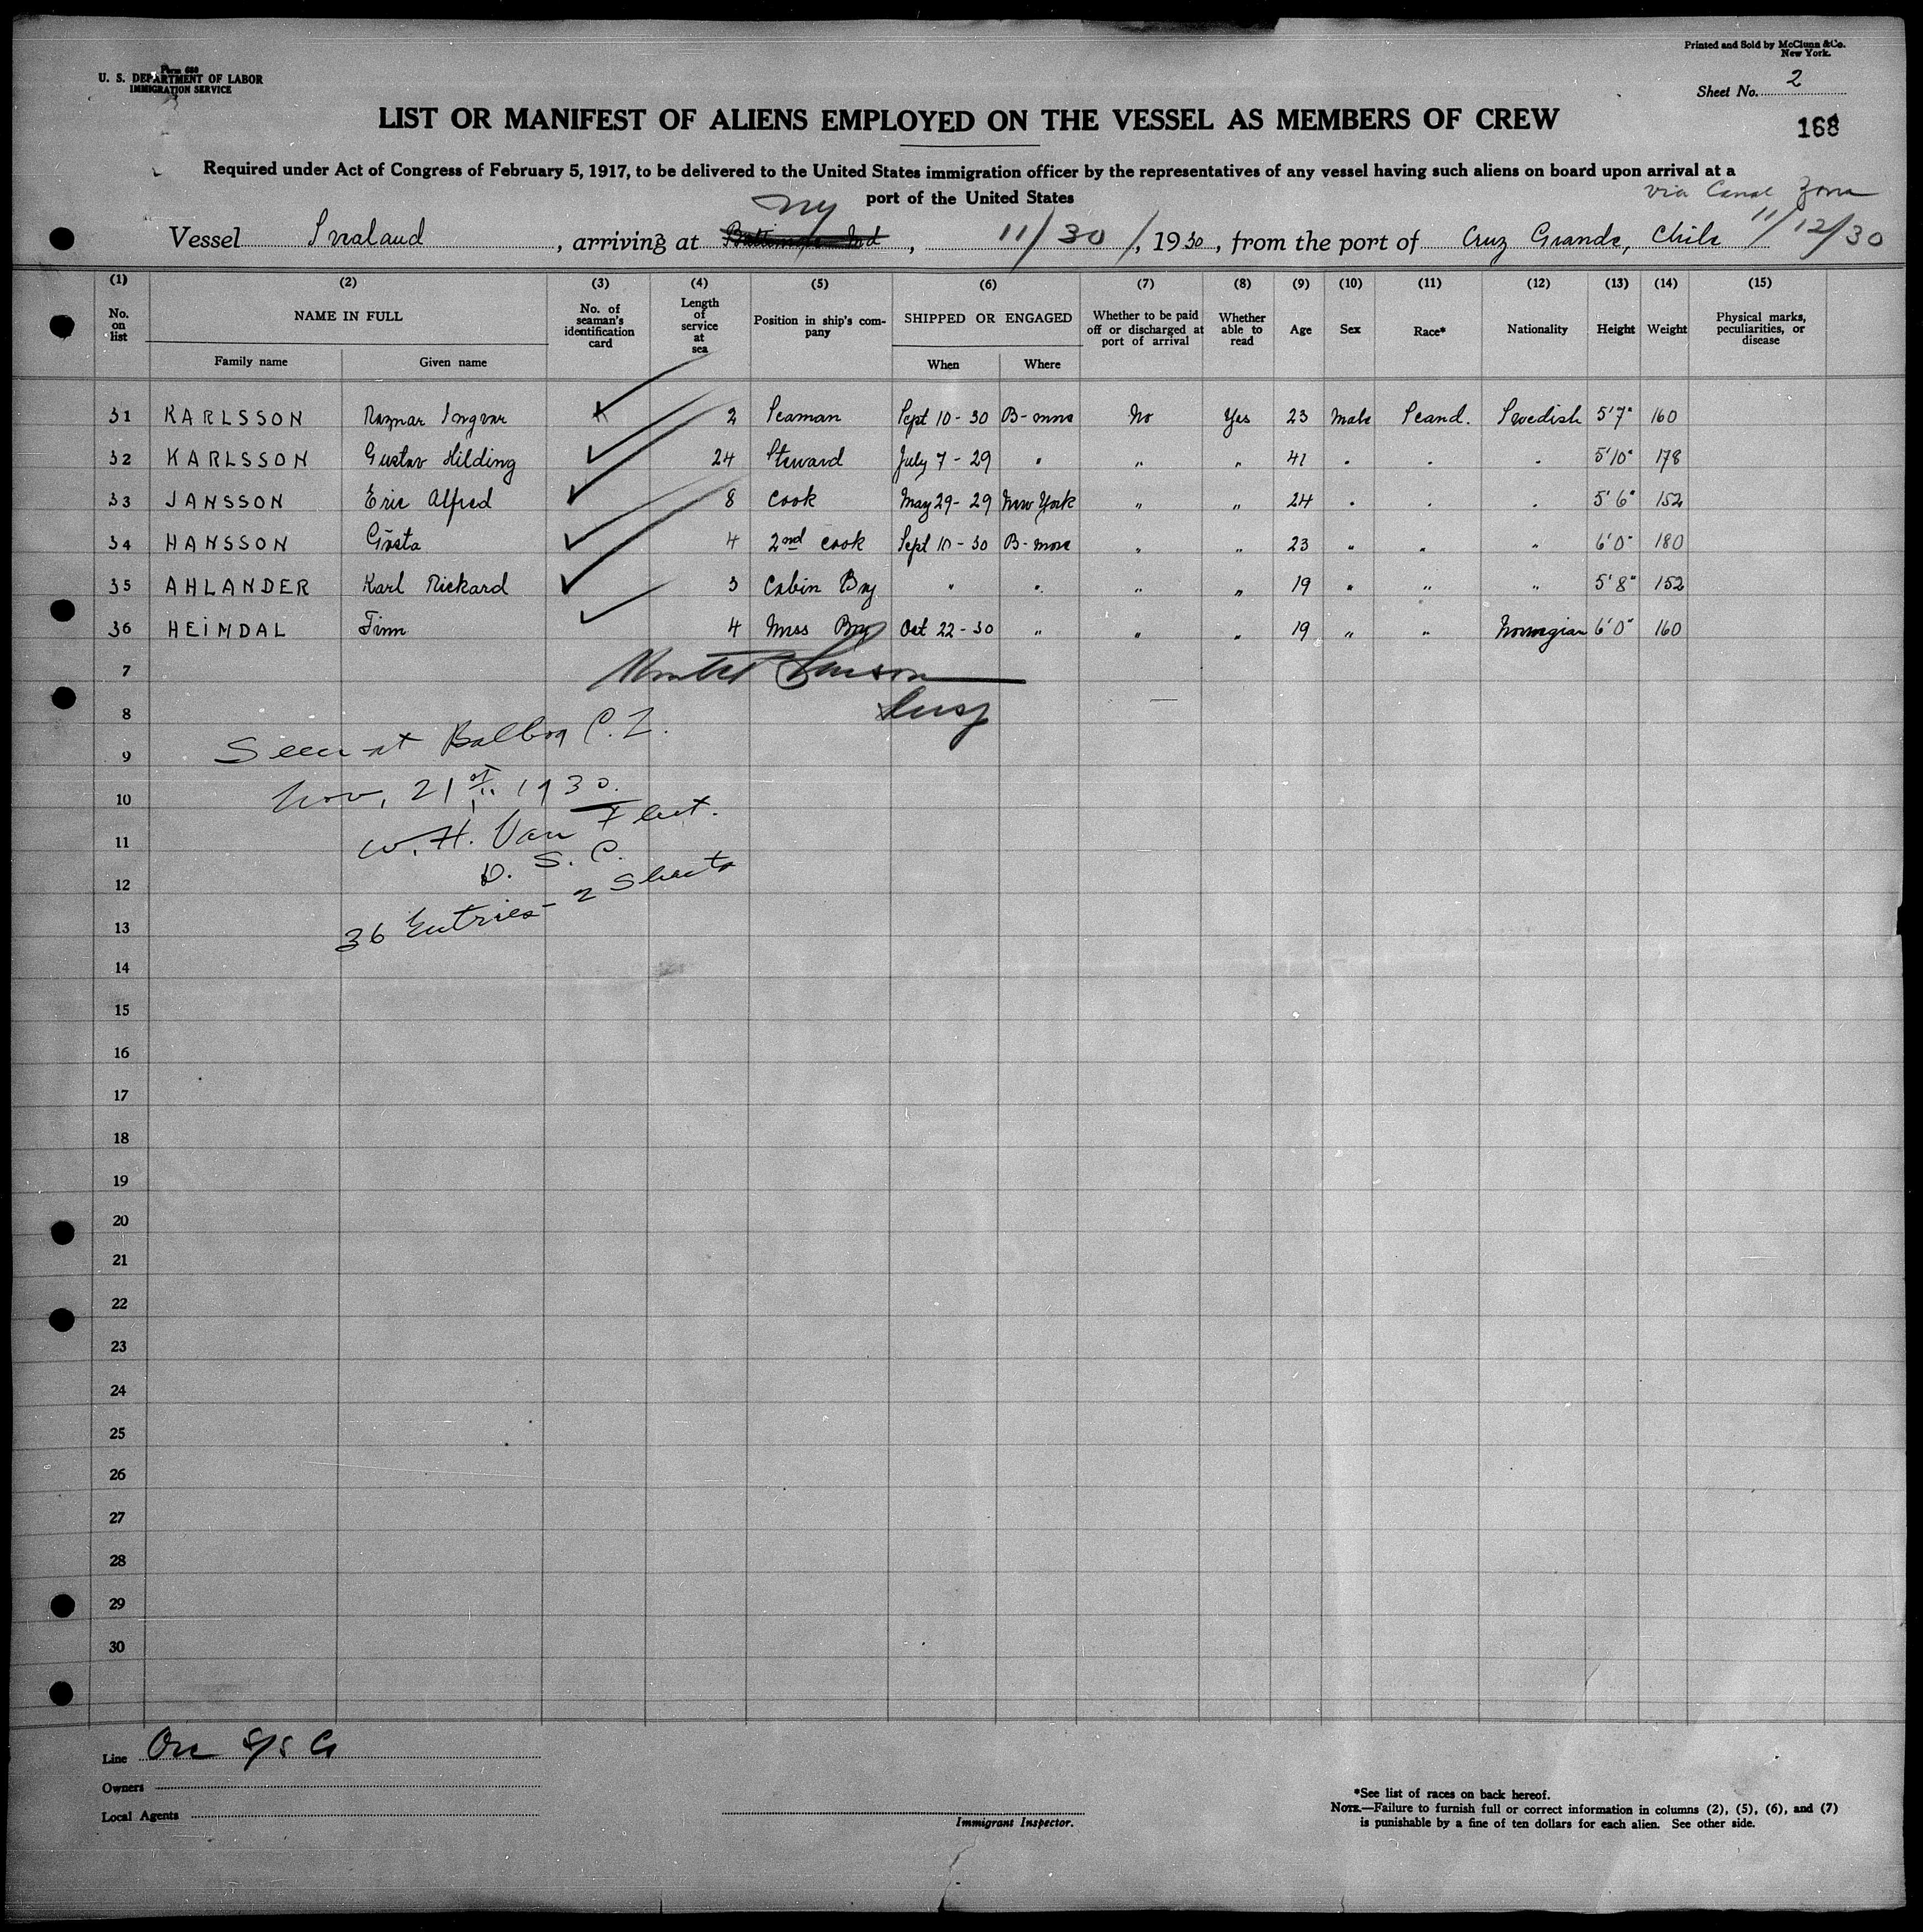 Printed and Sold by McClunn & Co.
New York.
Form 680
U. S. DEPARTMENT OF LABOR
IMMIGRATION SERVICE
Sheet No. 2
LIST OR MANIFEST OF ALIENS EMPLOYED ON THE VESSEL AS MEMBERS OF CREW
168
Required under Act of Congress of February 5, 1917, to be delivered to the United States immigration officer by the representatives of any vessel having such aliens on board upon arrival at a
port of the United States
via Canal Zone
NY
Vessel Svealand, arriving at Baltimore Md, 11/30/, 1930, from the port of Cruz Grande, Chile 11/12/30
(1) (2) (3) (4) (5) (6) (7) (8) (9) (10) (11) (12) (13) (14) (15)
No. on list NAME IN FULL No. of seaman's identification card Length of service at sea Position in ship's company SHIPPED OR ENGAGED Whether to be paid off or discharged at port of arrival Whether able to read Age Sex Race* Nationality Height Weight Physical marks, peculiarities, or disease
Family name Given name When Where
31 KARLSSON Ragnar Ingvar 2 Seaman Sept 10-30 B-more No Yes 23 Male Scand. Swedish 5'7" 160
32 KARLSSON Gustav Hilding 24 Steward July 7-29 " " " 41 " " " 5'10" 178
33 JANSSON Eric Alfred 8 Cook May 29-29 New York " " 24 " " " 5'6" 152
34 HANSSON Gösta 4 2nd cook Sept 10-30 B-more " " 23 " " " 6'0" 180
35 AHLANDER Karl Rickard 3 Cabin Boy " " " " 19 " " " 5'8" 152
36 HEIMDAL Finn 4 Mess Boy Oct 22-30 " " " 19 " " Norwegian 6'0" 160
7
8
Insp
9 Seen at Balboa C.Z.
10 Nov, 21st 1930.
11 W. H. Van Fleet.
12 D. S. C.
13 36 Entries - 2 Sheets
14
15
16
17
18
19
20
21
22
23
24
25
26
27
28
29
30
Line Ore S/S Co
Owners
Local Agents
Immigrant Inspector.
*See list of races on back hereof.
NOTE.—Failure to furnish full or correct information in columns (2), (5), (6), and (7)
is punishable by a fine of ten dollars for each alien. See other side.